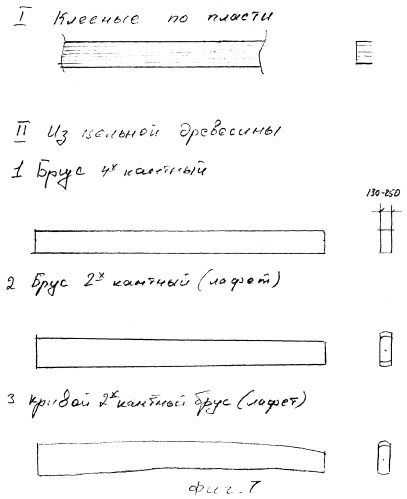 I Клееные по пласти
II Из цельной древесины
1 Брус 4х кантный
130-250
2 Брус 2х кантный (лафет)
3 кривой 2х кантный брус (лафет)
фиг. 7